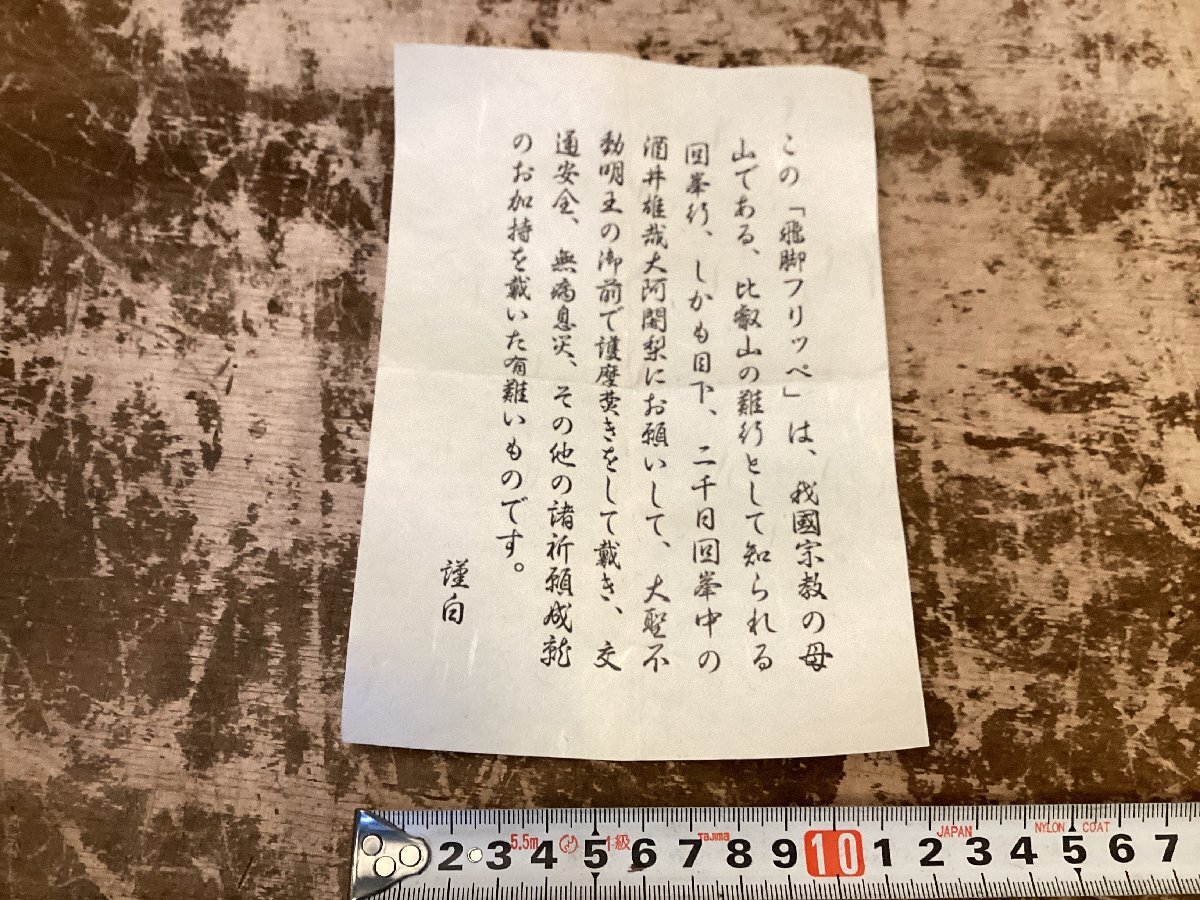 この「飛脚フリッペ」は、我國宗教の母
山である、比叡山の難行として知られる
回峯行、しかも目下、二千日回峯中の
酒井雄哉大阿闍梨にお願いして、大聖不
動明王の御前で護摩焚きをして戴き、交
通安全、無病息災、その他の諸祈願成就
のお加持を戴いた有難いものです。
謹白
2 3 4 5 6 7 8 9 10 1 2 3 4 5 6 7
5.5m 1級 Tajima JAPAN NYLON COAT